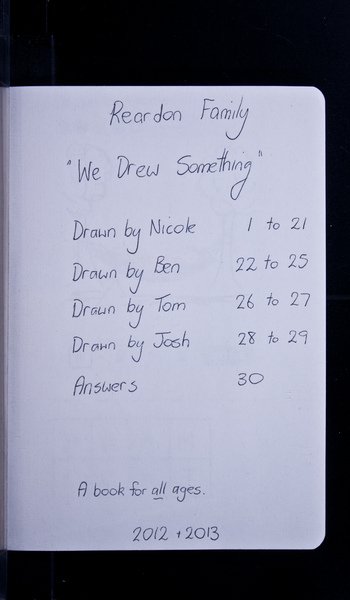 Reardon Family
"We Drew Something"
Drawn by Nicole 1 to 21
Drawn by Ben 22 to 25
Drawn by Tom 26 to 27
Drawn by Josh 28 to 29
Answers 30
A book for all ages.
2012 + 2013